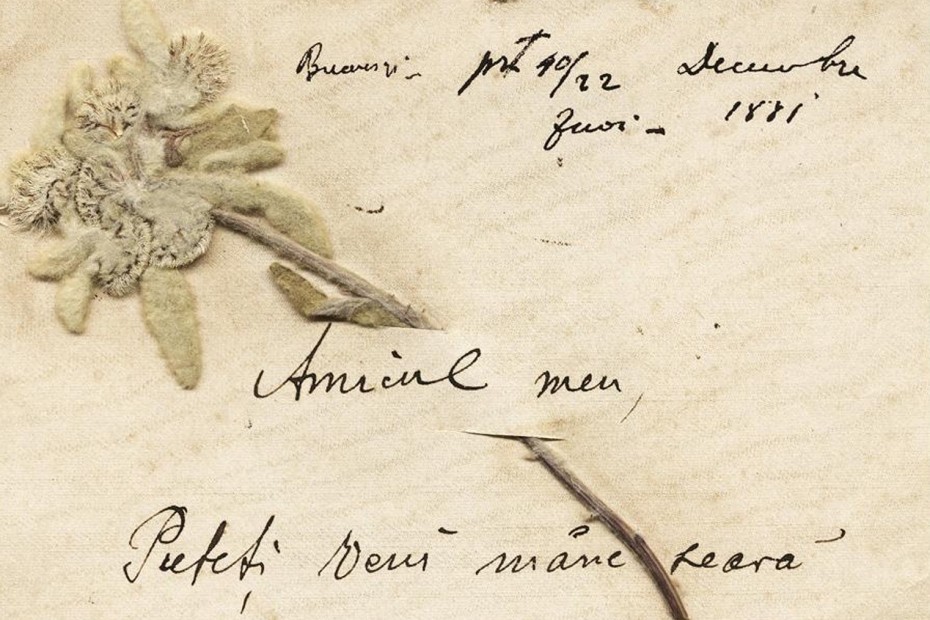 Bucuresci- 10/22 Decembre
Juoi - 1881
Amicul meu,
Puteți veni mâne seară